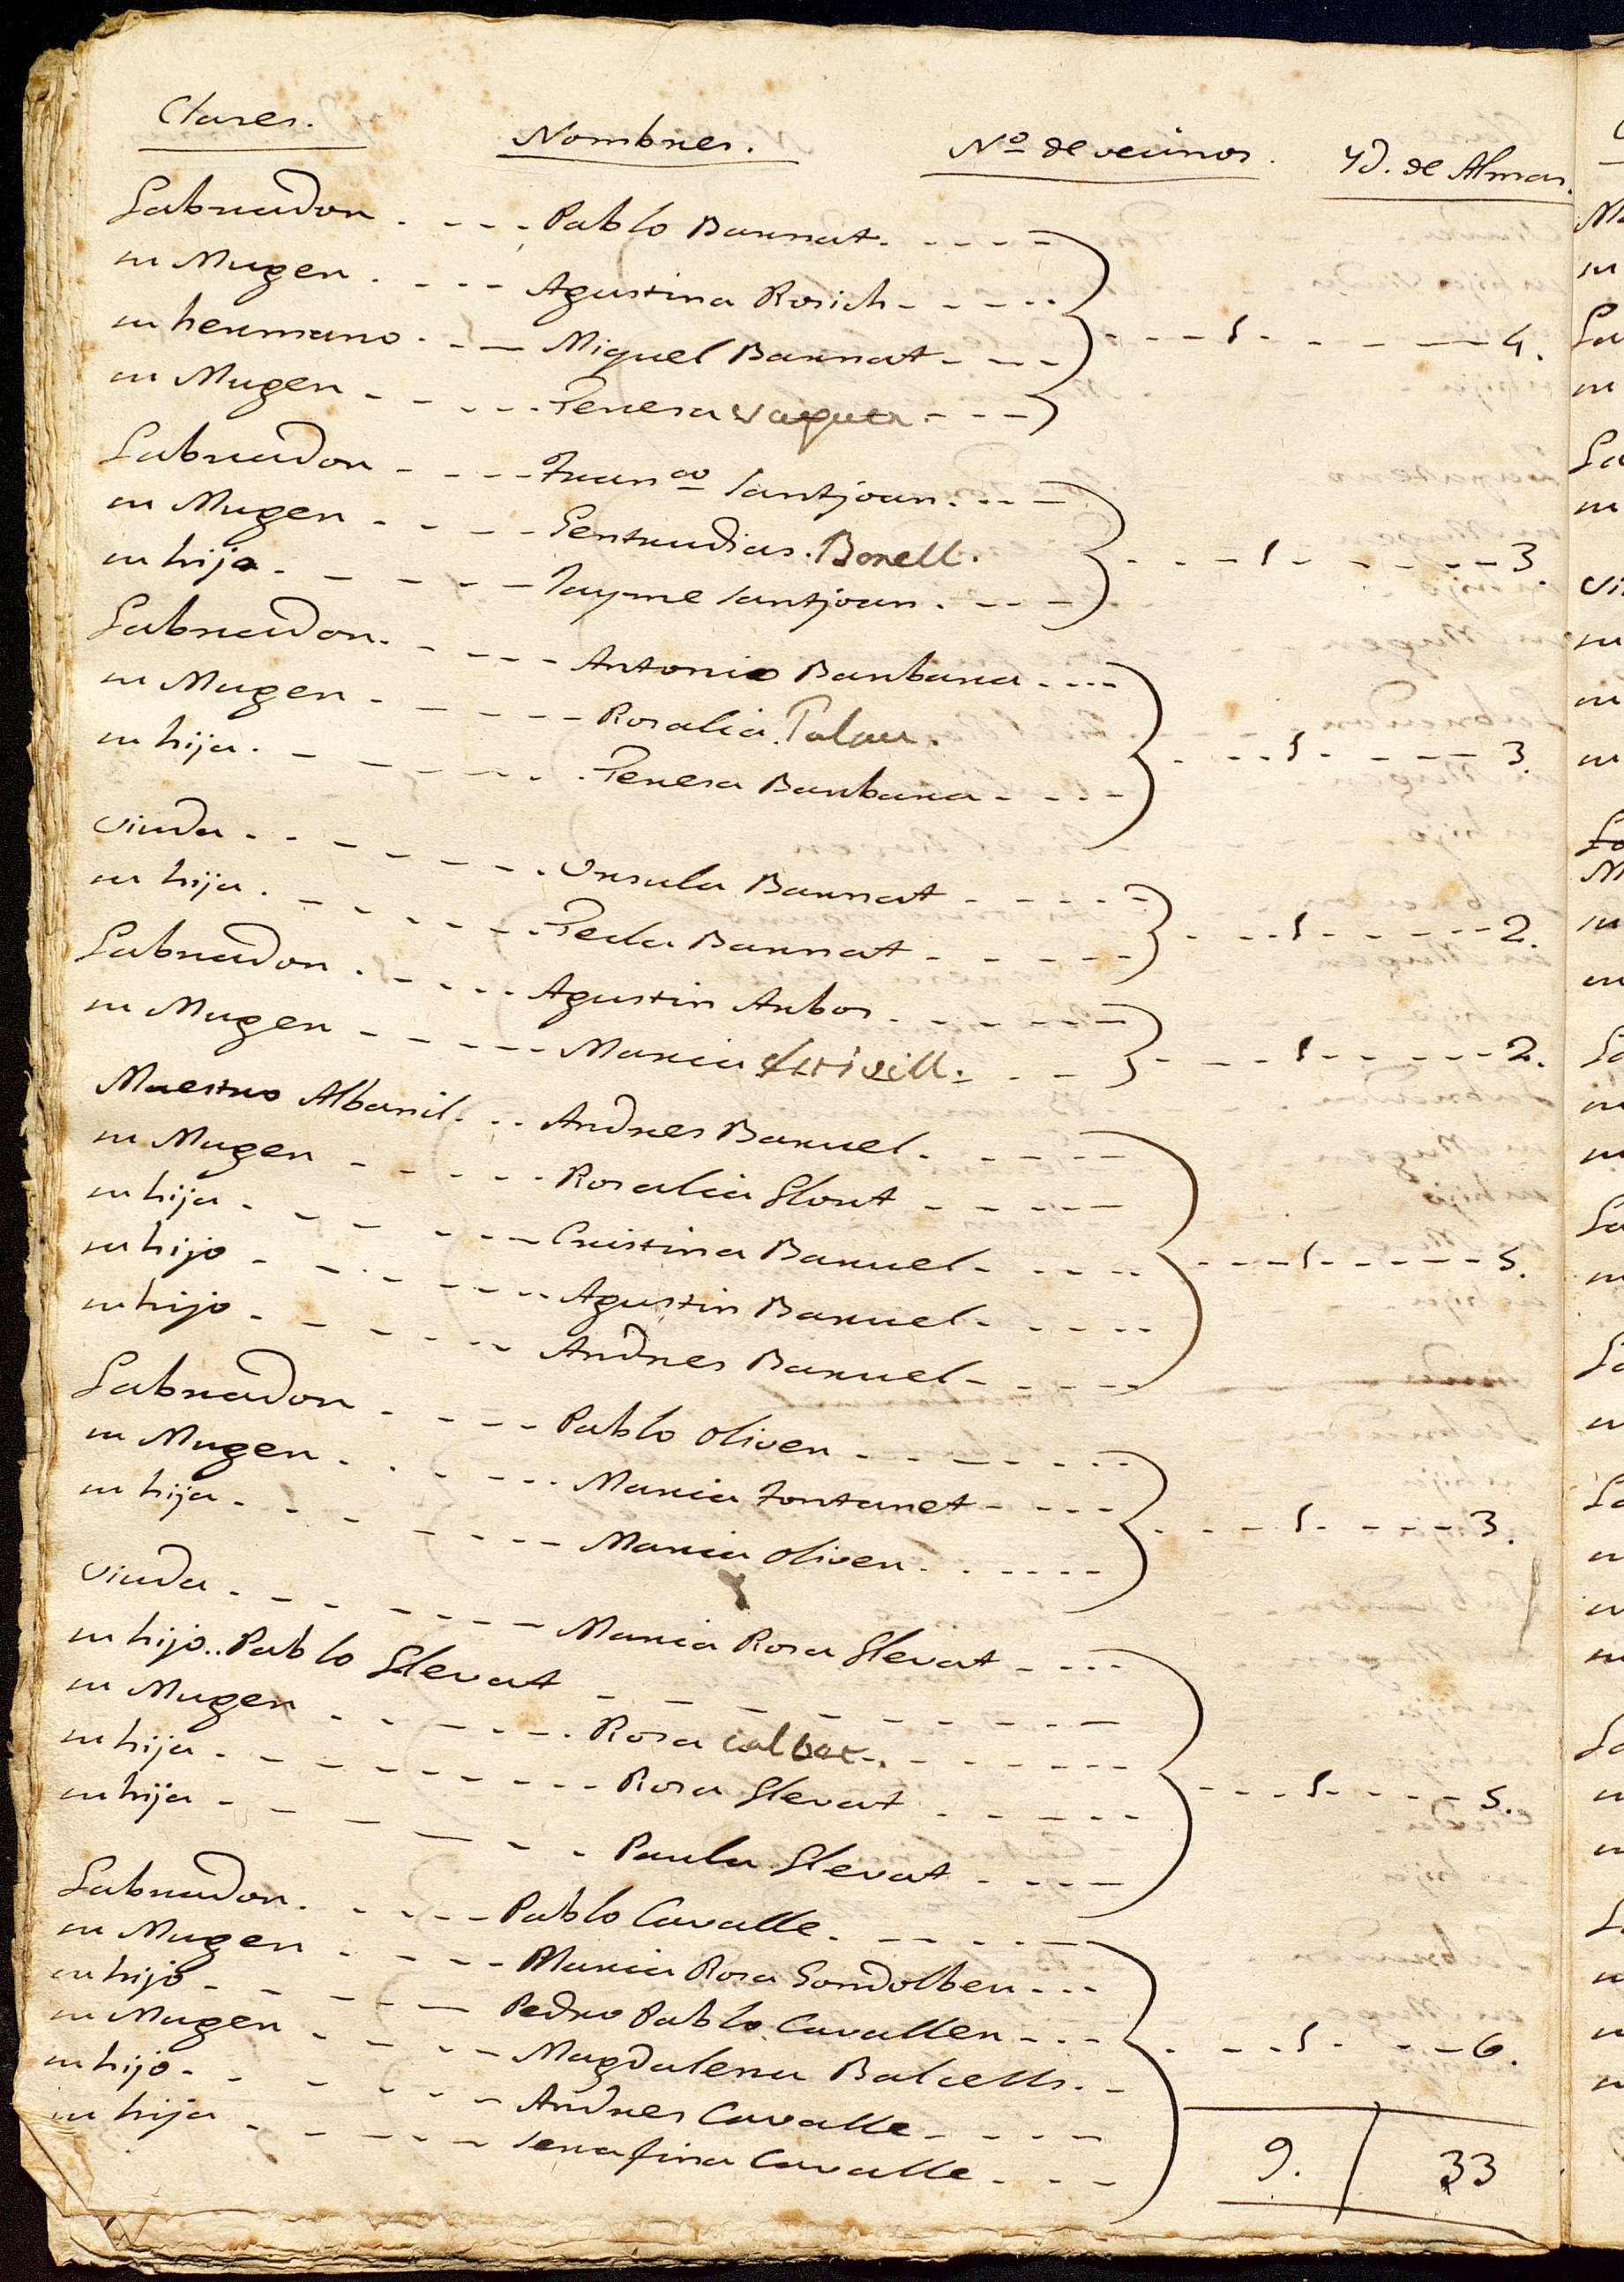 Clases. Nombres. Nº de vecinos. Yd. de Almas.
Labrador Pablo Barrat
su Muger Agustina Rosich
su hermano Miguel Barrat 1 4.
su Muger Teresa
Labrador Franco Santjoan
su Muger Gertrudias Borell.
su hijo Jayme Santjoan 1 3.
Labrador Antonio Barbara
su Muger Rosalia Palau.
su hija Teresa Barbara 1 3.
viuda Ursula Barrat
su hija Tecla Barrat 1 2.
Labrador Agustin Arbos
su Muger Maria 1 2.
Maestro Albañil Andres Baruel
su Muger Rosalia Llort
su hija Cristina Baruel 1 5.
su hijo Agustin Baruel
su hijo Andres Baruel
Labrador Pablo Oliver
su Muger Maria Fontanet 1 3.
su hija Maria Oliver
viuda Maria Rosa Llevat
su hijo.. Pablo Llevat
su Muger Rosa Calbet
su hija Rosa Llevat 1 5.
su hija Paula Llevat
Labrador Pablo Cavalle
su Muger Maria Rosa Gondolbeu
su hijo Pedro Pablo Cavaller
su Muger Magdalena Balcells 1 6.
su hijo Andres Cavalle
su hija Serafina Cavalle
9. 33